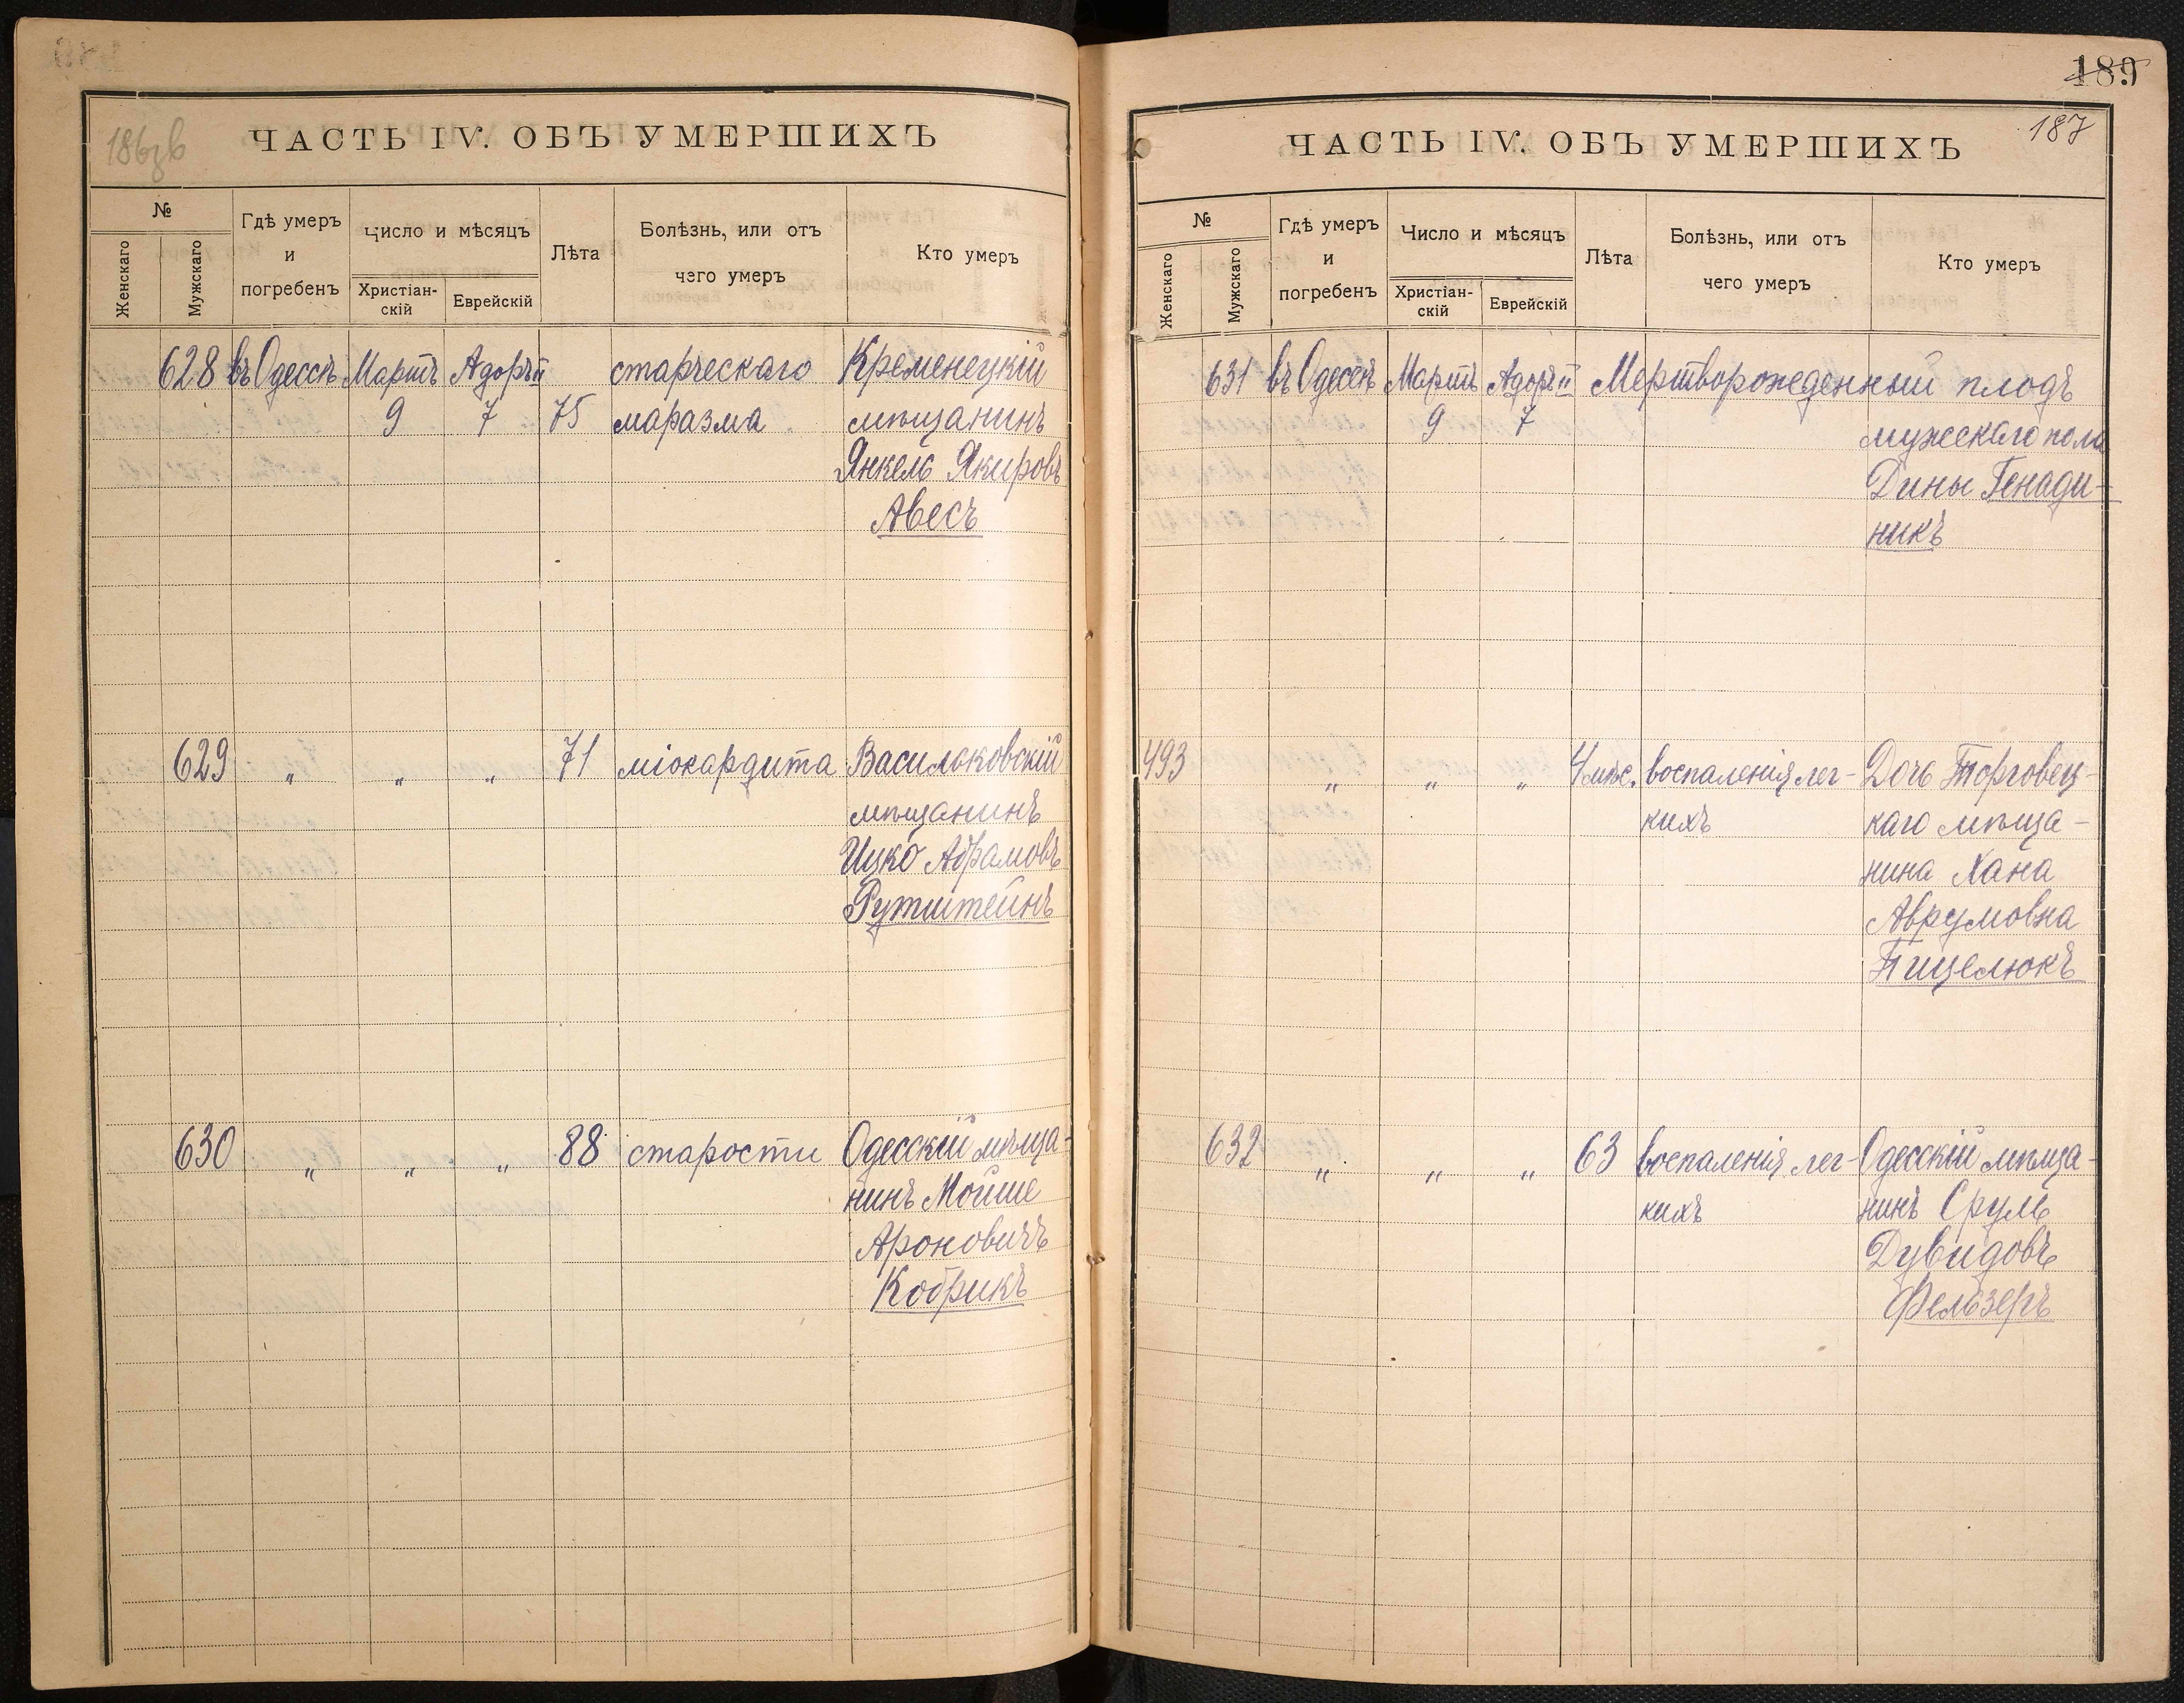 186зв
ЧАСТЬ IV. ОБЪ УМЕРШИХЪ
№
Женскаго
Мужскаго
Гдѣ умеръ
и
погребенъ
Число и мѣсяцъ
Христіан-
скій
Еврейскій
Лѣта
Болѣзнь, или отъ
чего умеръ
Кто умеръ
628 въ Одессѣ Мартъ Адоръ II старческаго Кременецкій
9 7 75 маразма мѣщанинъ
Янкель Якировъ
Авесъ
629 " " " 71 міокардита Васильковскій
мѣщанинъ
Ицко Абрамовъ
Рутштейнъ
630 " " " 88 старости Одесскій мѣща-
нинъ Мойше
Ароновичъ
Кобрикъ
189
187
ЧАСТЬ IV. ОБЪ УМЕРШИХЪ
№
Женскаго
Мужскаго
Гдѣ умеръ
и
погребенъ
Число и мѣсяцъ
Христіан-
скій
Еврейскій
Лѣта
Болѣзнь, или отъ
чего умеръ
Кто умеръ
631 въ Одессѣ Мартъ Адоръ II Мертворожденный плодъ
9 7 мужескаго пола
Дины Генади-
никъ
493 " " " 4 мѣс. воспаленія лег- Дочь Торговец-
кихъ каго мѣща-
нина Хана
Аврумовна
Пицелюкъ
632 " " " 63 воспаленія лег- Одесскій мѣща-
кихъ нинъ Сруль
Дувидовъ
Фельзеръ